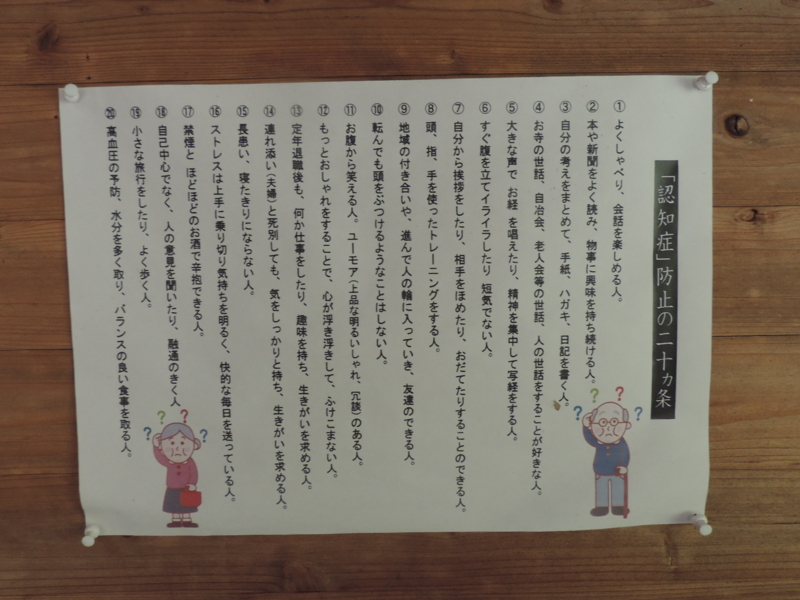 「認知症」防止の二十ヵ条
① よくしゃべり、会話を楽しめる人。
② 本や新聞をよく読み、物事に興味を持ち続ける人。
③ 自分の考えをまとめて、手紙、ハガキ、日記を書く人。
④ お寺の世話、自治会、老人会等の世話、人の世話をすることが好きな人。
⑤ 大きな声で お経 を唱えたり、精神を集中して写経をする人。
⑥ すぐ腹を立てイライラしたり 短気でない人。
⑦ 自分から挨拶をしたり、相手をほめたり、おだてたりすることのできる人。
⑧ 頭、指、手を使ったトレーニングをする人。
⑨ 地域の付き合いや、進んで人の輪に入っていき、友達のできる人。
⑩ 転んでも頭をぶつけるようなことはしない人。
⑪ お腹から笑える人。ユーモア(上品な明るいしゃれ、冗談)のある人。
⑫ もっとおしゃれをすることで、心が浮き浮きして、ふけこまない人。
⑬ 定年退職後も、何か仕事をしたり、趣味を持ち、生きがいを求める人。
⑭ 連れ添い(夫婦)と死別しても、気をしっかりと持ち、生きがいを求める人。
⑮ 長患い、寝たきりにならない人。
⑯ ストレスは上手に乗り切り気持ちを明るく、快的な毎日を送っている人。
⑰ 禁煙と ほどほどのお酒で辛抱できる人。
⑱ 自己中心でなく、人の意見を聞いたり、融通のきく人
⑲ 小さな旅行をしたり、よく歩く人。
⑳ 高血圧の予防、水分を多く取り、バランスの良い食事を取る人。
? ? ? ?
? ? ? ?